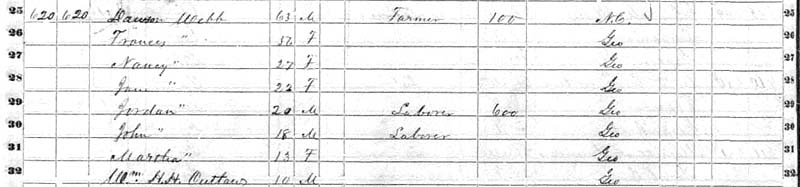 25 620 620 Dawson Webb 63 M Farmer 100 N.C. 25
26 Frances " 56 F Geo 26
27 Nancy " 27 F Geo 27
28 Jane " 22 F Geo 28
29 Jordan " 20 M Laborer 600 Geo 29
30 John " 18 M Laborer Geo 30
31 Martha " 13 F Geo 31
32 Wm H.H. Outlaw 10 M Geo 32